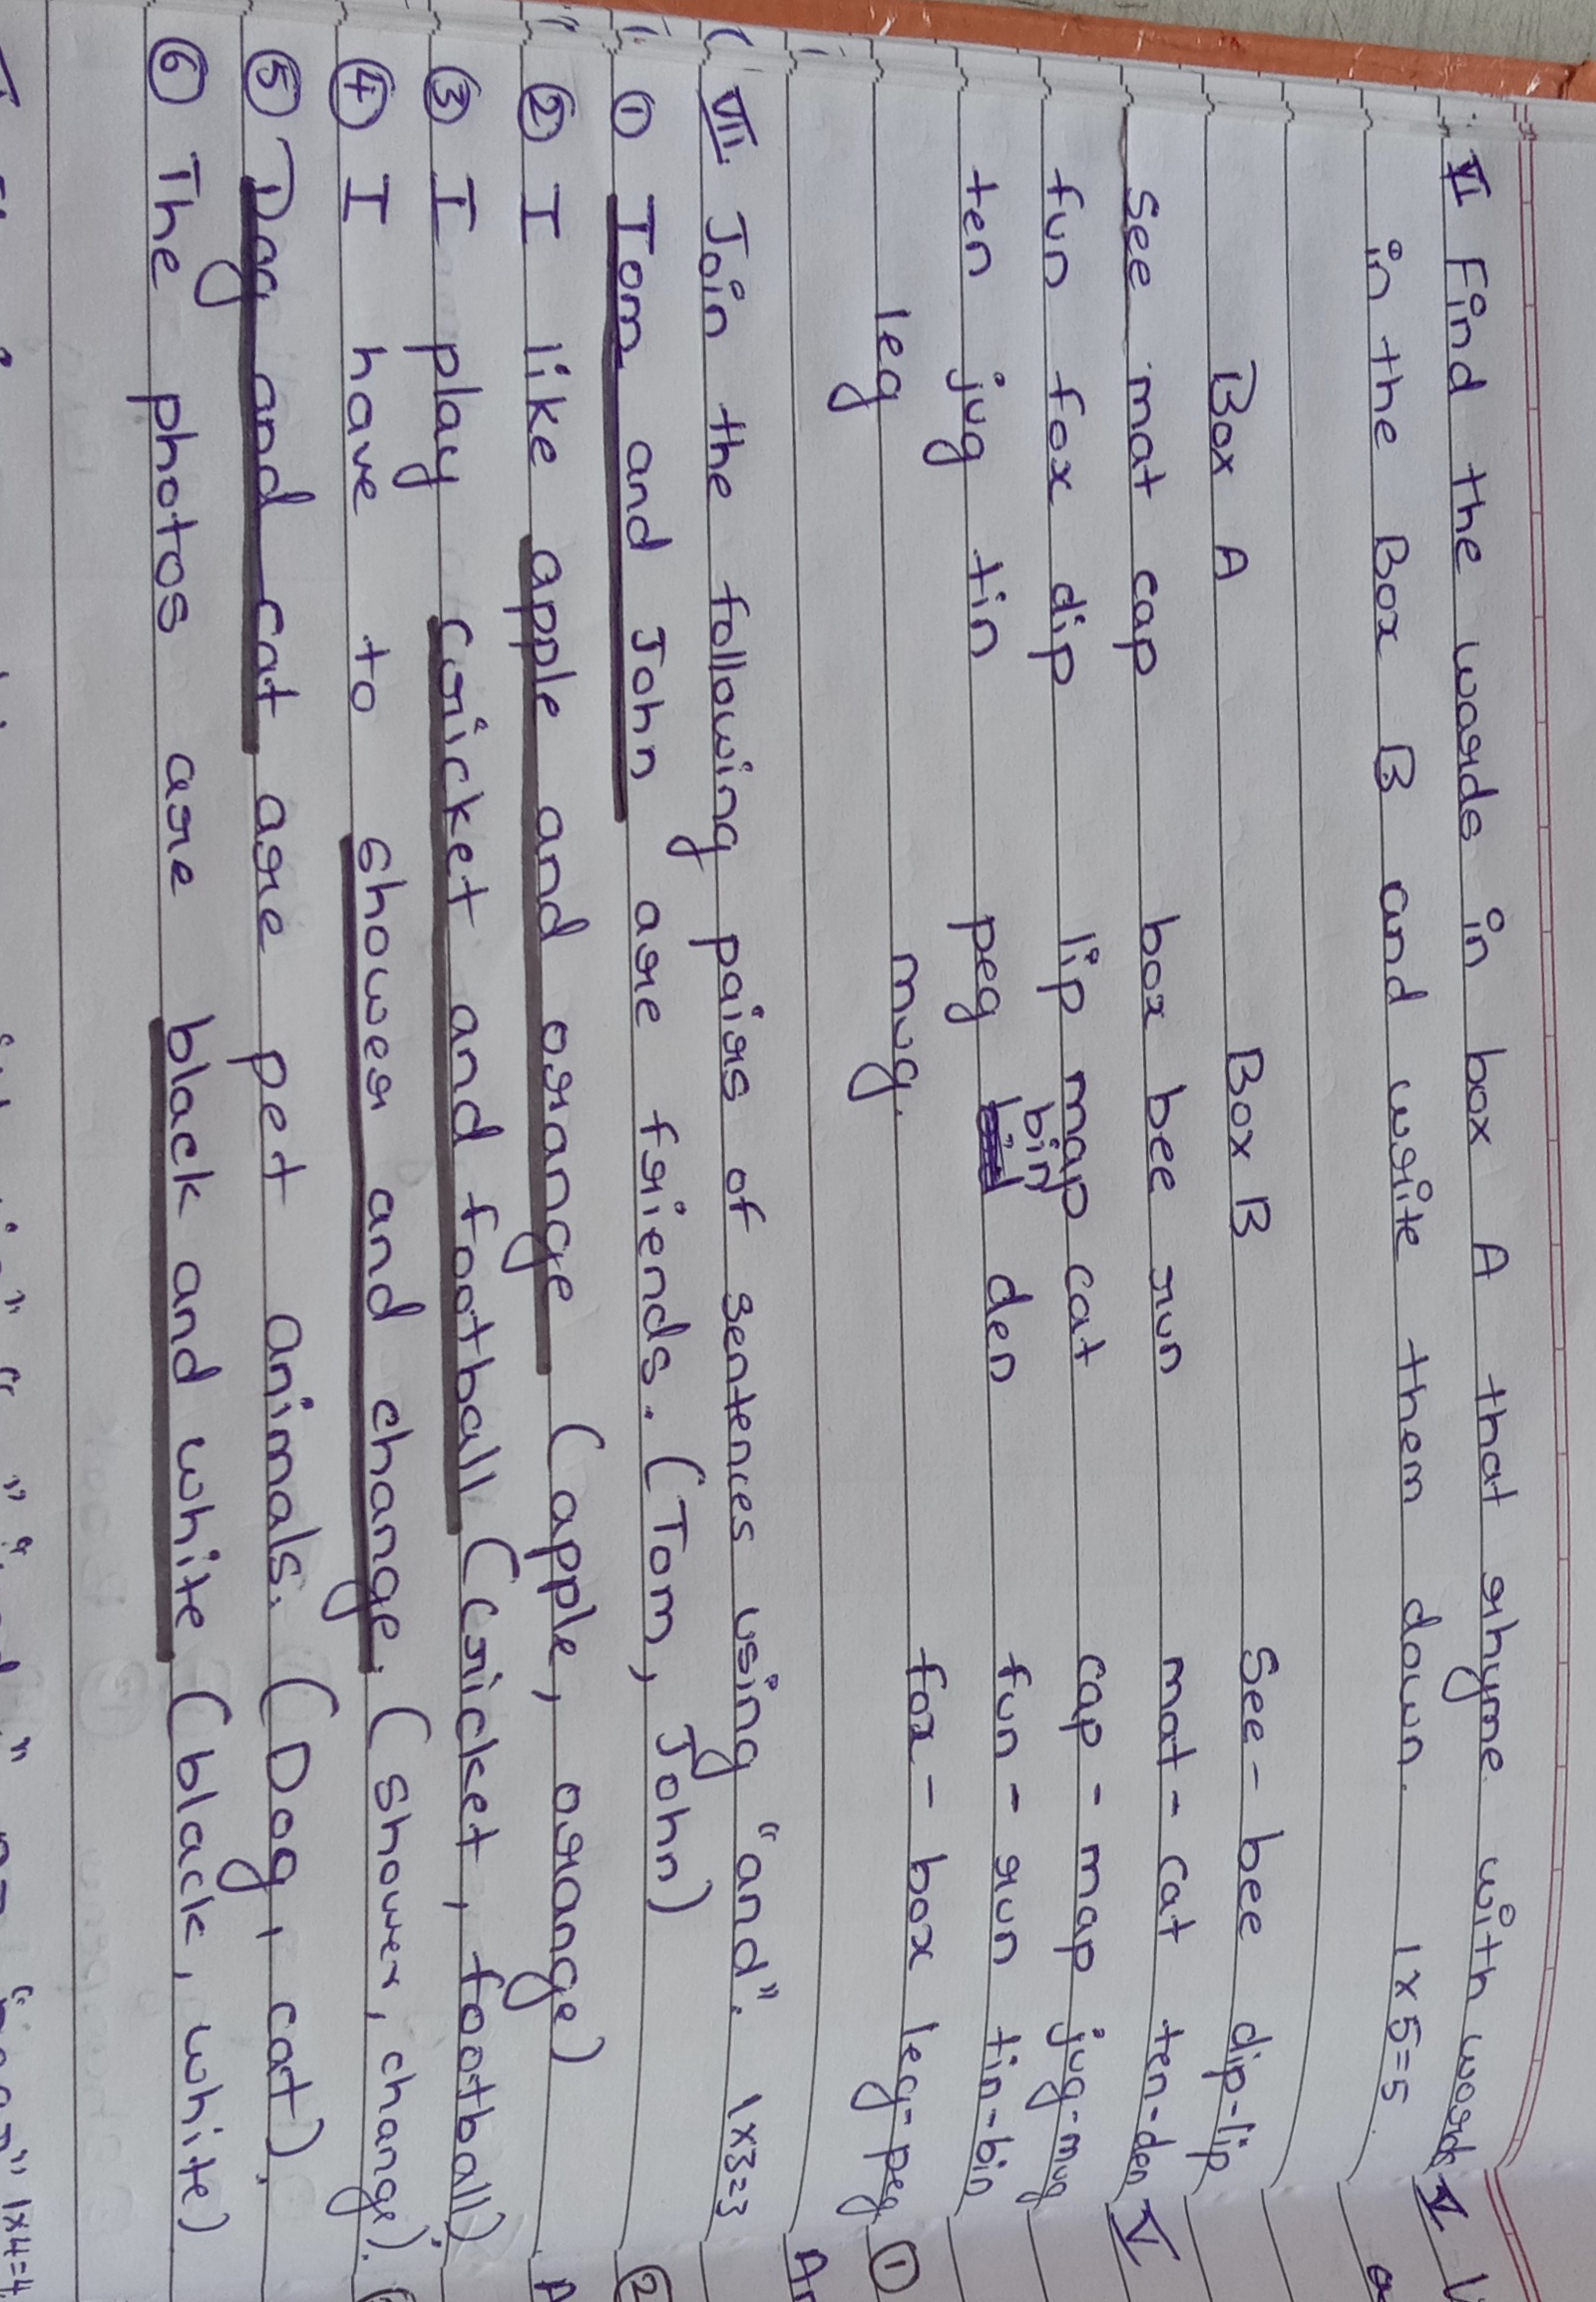 VI Find the words in box A that rhyme with word
in the Box B and write them down. 1×5=5
Box A Box B See - bee dip-lip
See mat cap box bee run mat - cat ten-den
fun fox dip lip map cat cap - map jug-mug
bin
ten jug tin peg den fun - run tin-bin
leg mug. fox - box leg-peg
VII. Join the following pairs of sentences using "and". 1×3=3
① Tom and John are friends. (Tom, John)
② I like apple and orange (apple, orange)
③ I play Cricket and football (Cricket, football).
④ I have to shower and change. (shower, change).
⑤ Dog and cat are pet animals. (Dog, cat).
⑥ The photos are black and white (black, white)
1×4=4
V
V
①
②